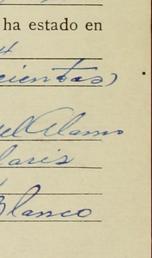 ha estado en
cientas)
el Alamo
laris
Blanco